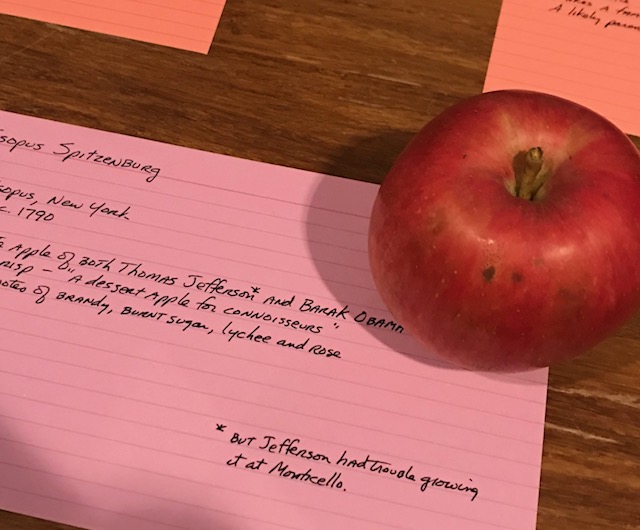 sopus Spitzenburg
sopus, New York
c. 1790
Apple of Both Thomas Jefferson* and Barak Obama
risp – "A dessert Apple for connoisseurs"
notes of Brandy, Burnt sugar, lychee and Rose
* But Jefferson had trouble growing
it at Monticello.
A likely